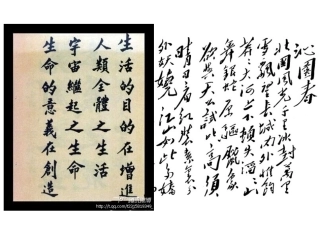 沁園春
北國風光千里冰封萬里
雪飄望長城内外惟餘
莽莽大河上下頓失滔滔山
舞銀蛇原驅臘象
欲與天公試比高須
晴日看紅裝素裹分
外妖嬈江山如此多嬌
生活的目的在增進
人類全體之生活
宇宙繼起之生命
生命的意義在創造
腾讯微博